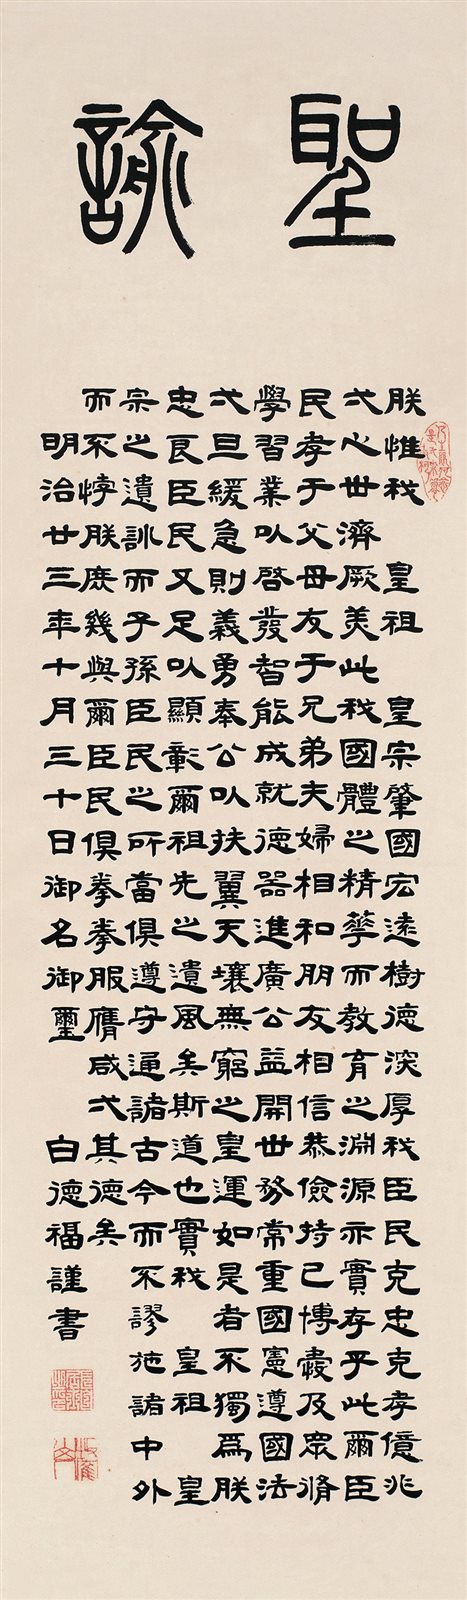 聖諭
朕惟我　皇祖　皇宗肇國宏遠樹德深厚我臣民克忠克孝億兆
弌心世濟厥美此我國體之精華而教育之淵源亦實存乎此爾臣
民孝于父母友于兄弟夫婦相和朋友相信恭儉持己博愛及眾脩
學習業以啓發智能成就德器進廣公益開世務常重國憲遵國法
弌旦緩急則義勇奉公以扶翼天壤無窮之皇運如是者不獨為朕
忠良臣民又足以顯彰爾祖先之遺風矣斯道也實我　皇祖　皇
宗之遺訓而子孫臣民之所當俱遵守通諸古今而不謬施諸中外
而不悖朕庶幾與爾臣民俱拳拳服膺咸弌其德矣
明治廿三年十月三十日御名御璽　白德福謹書